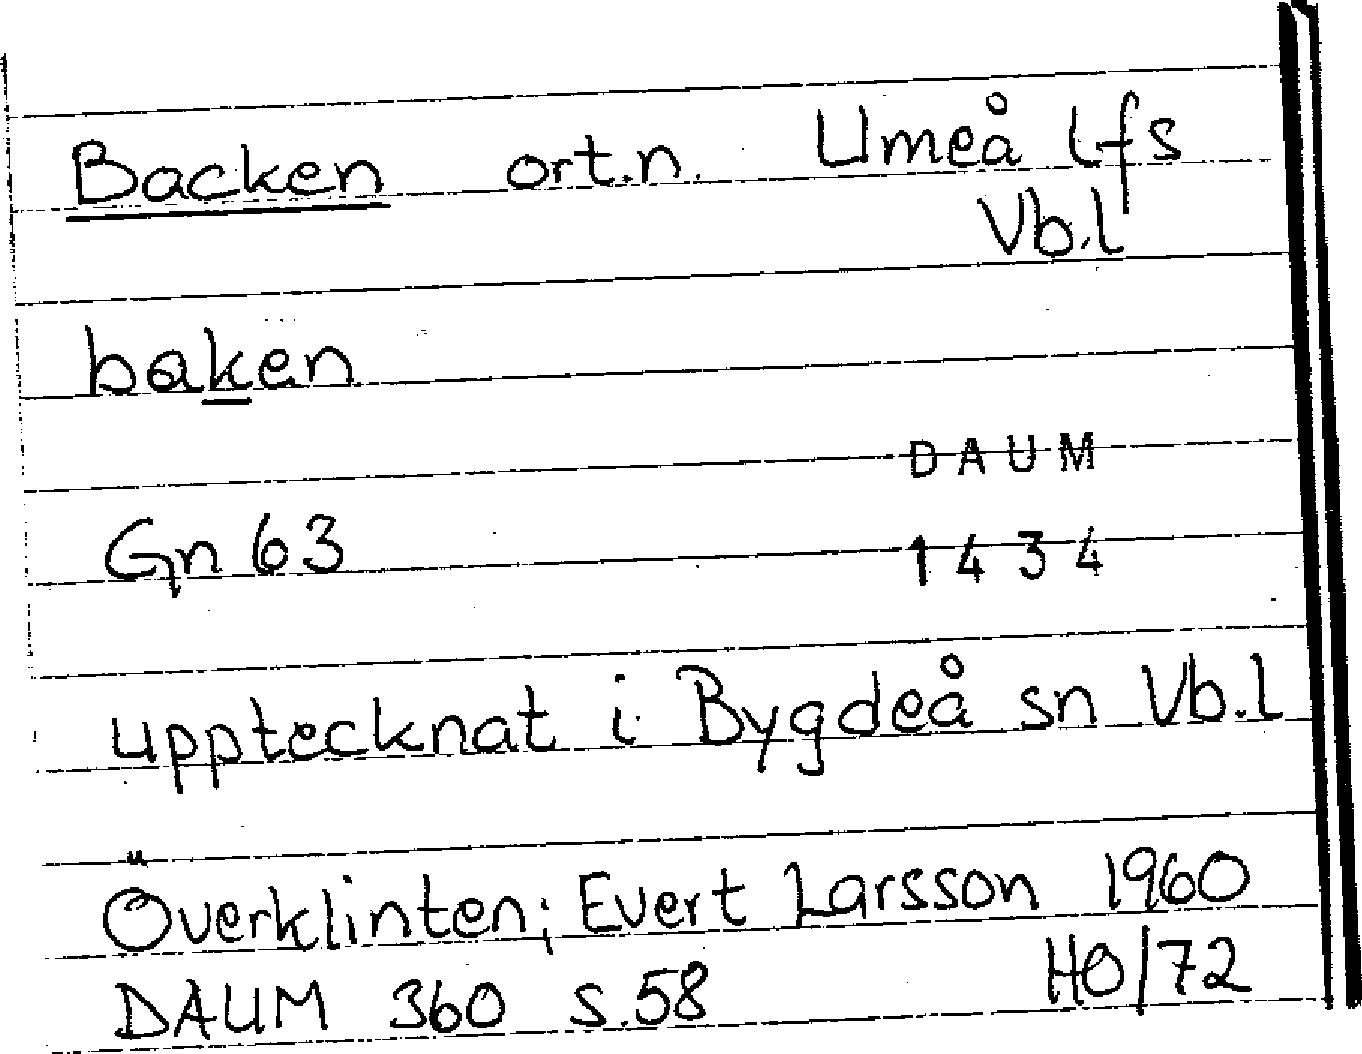 Backen ort.n. Umeå lfs
Vb.l
baken
DAUM
Gn 63 1434
upptecknat i Bygdeå sn Vb.l
Överklinten; Evert Larsson 1960
DAUM 360 s.58 HO/72